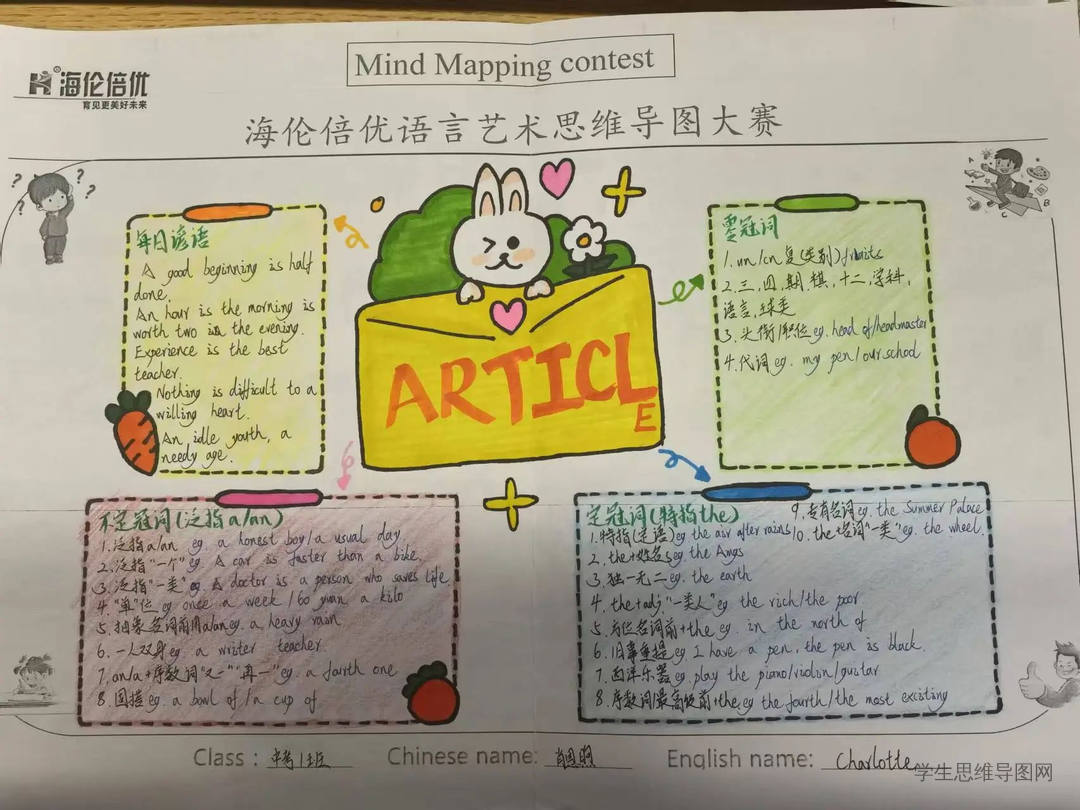 Mind Mapping contest
海伦倍优
育见更美好未来
海伦倍优语言艺术思维导图大赛
每日谚语
A good beginning is half
done.
An hour is the morning is
worth two in the evening.
Experience is the best
teacher.
Nothing is difficult to a
willing heart.
An idle youth, a
needy age.
ARTICL
E
零冠词
1. un/cn复(类别) fruits
2.三,四,期,棋,十二,学科,
语言,球类
3.头衔/职位eg. head of/headmaster
4.代词eg. my pen/our school
不定冠词(泛指a/an)
1.泛指a/an eg. a honest boy/a usual day
2.泛指"一个"eg. A car is faster than a bike.
3.泛指"一类"eg A doctor is a person who saves life
4."单"位 eg once a week /60 yuan a kilo
5.抽象名词前用a/an eg. a heavy rain
6.一人双身eg. a writer teacher.
7. an/a+序数词"又一""再一"eg. a fourth one
8.固搭eg. a bowl of/a cup of
定冠词(特指the)
1.特指(定语)eg the air after rains
2. the+姓名s eg the Angs
3.独一无二eg. the earth
4. the+adj."一类人"eg the rich/the poor
5.方位名词前+the eg. in the north of
6.旧事重提eg. I have a pen, the pen is black.
7.西洋乐器eg. play the piano/violin/guitar
8.序数词/最高级前+the eg the fourth/the most exciting
9.专有名词eg. the Summer Palace
10. the+名词"一类"eg. the wheel.
Class : 中考1班
Chinese name:
English name: Charlotte
学生思维导图网